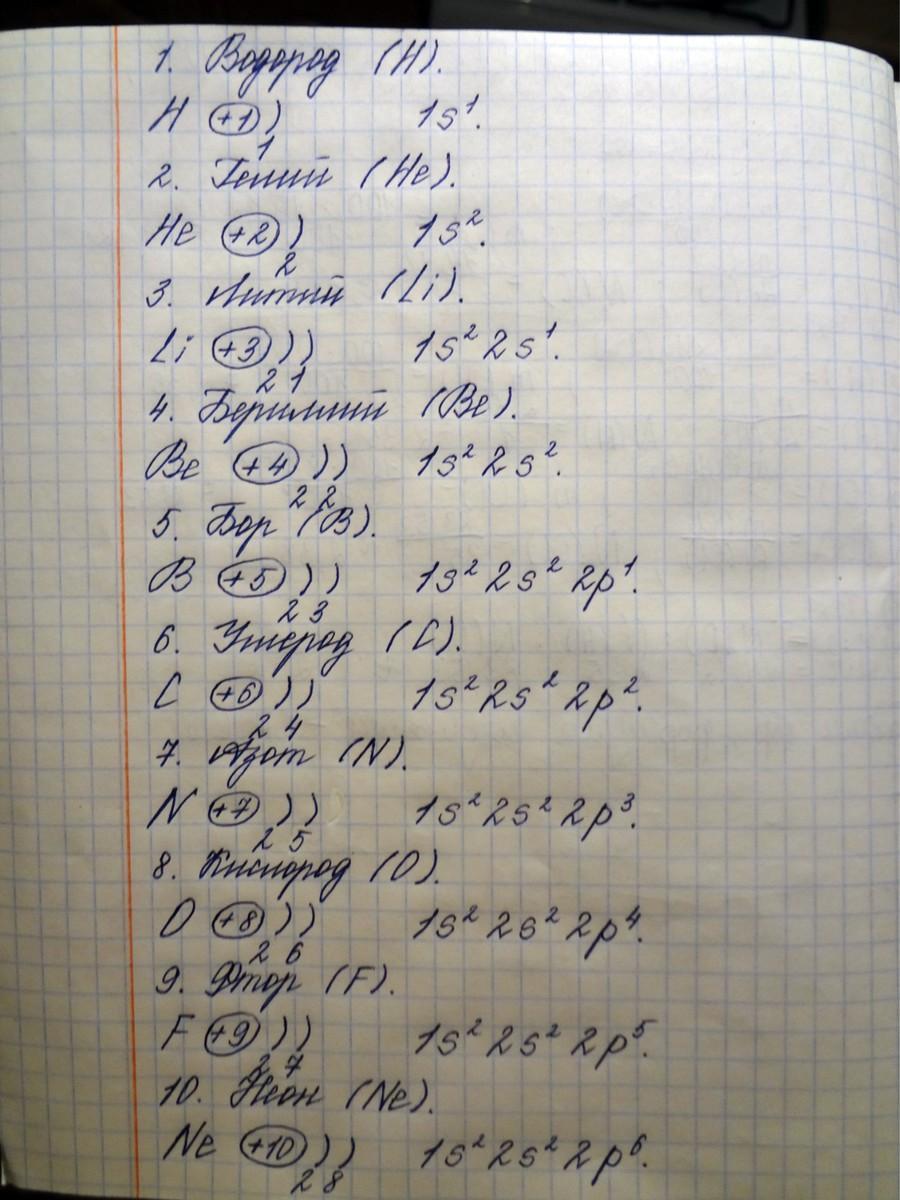 1. Водород (H).
H (+1) ) 1s¹.
1
2. Гелий (He).
He (+2) ) 1s².
2
3. Литий (Li).
Li (+3) ) ) 1s² 2s¹.
2 1
4. Бериллий (Be).
Be (+4) ) ) 1s² 2s².
2 2
5. Бор (B).
B (+5) ) ) 1s² 2s² 2p¹.
2 3
6. Углерод (C).
C (+6) ) ) 1s² 2s² 2p².
2 4
7. Азот (N).
N (+7) ) ) 1s² 2s² 2p³.
2 5
8. Кислород (O).
O (+8) ) ) 1s² 2s² 2p⁴.
2 6
9. Фтор (F).
F (+9) ) ) 1s² 2s² 2p⁵.
2 7
10. Неон (Ne).
Ne (+10) ) ) 1s² 2s² 2p⁶.
2 8